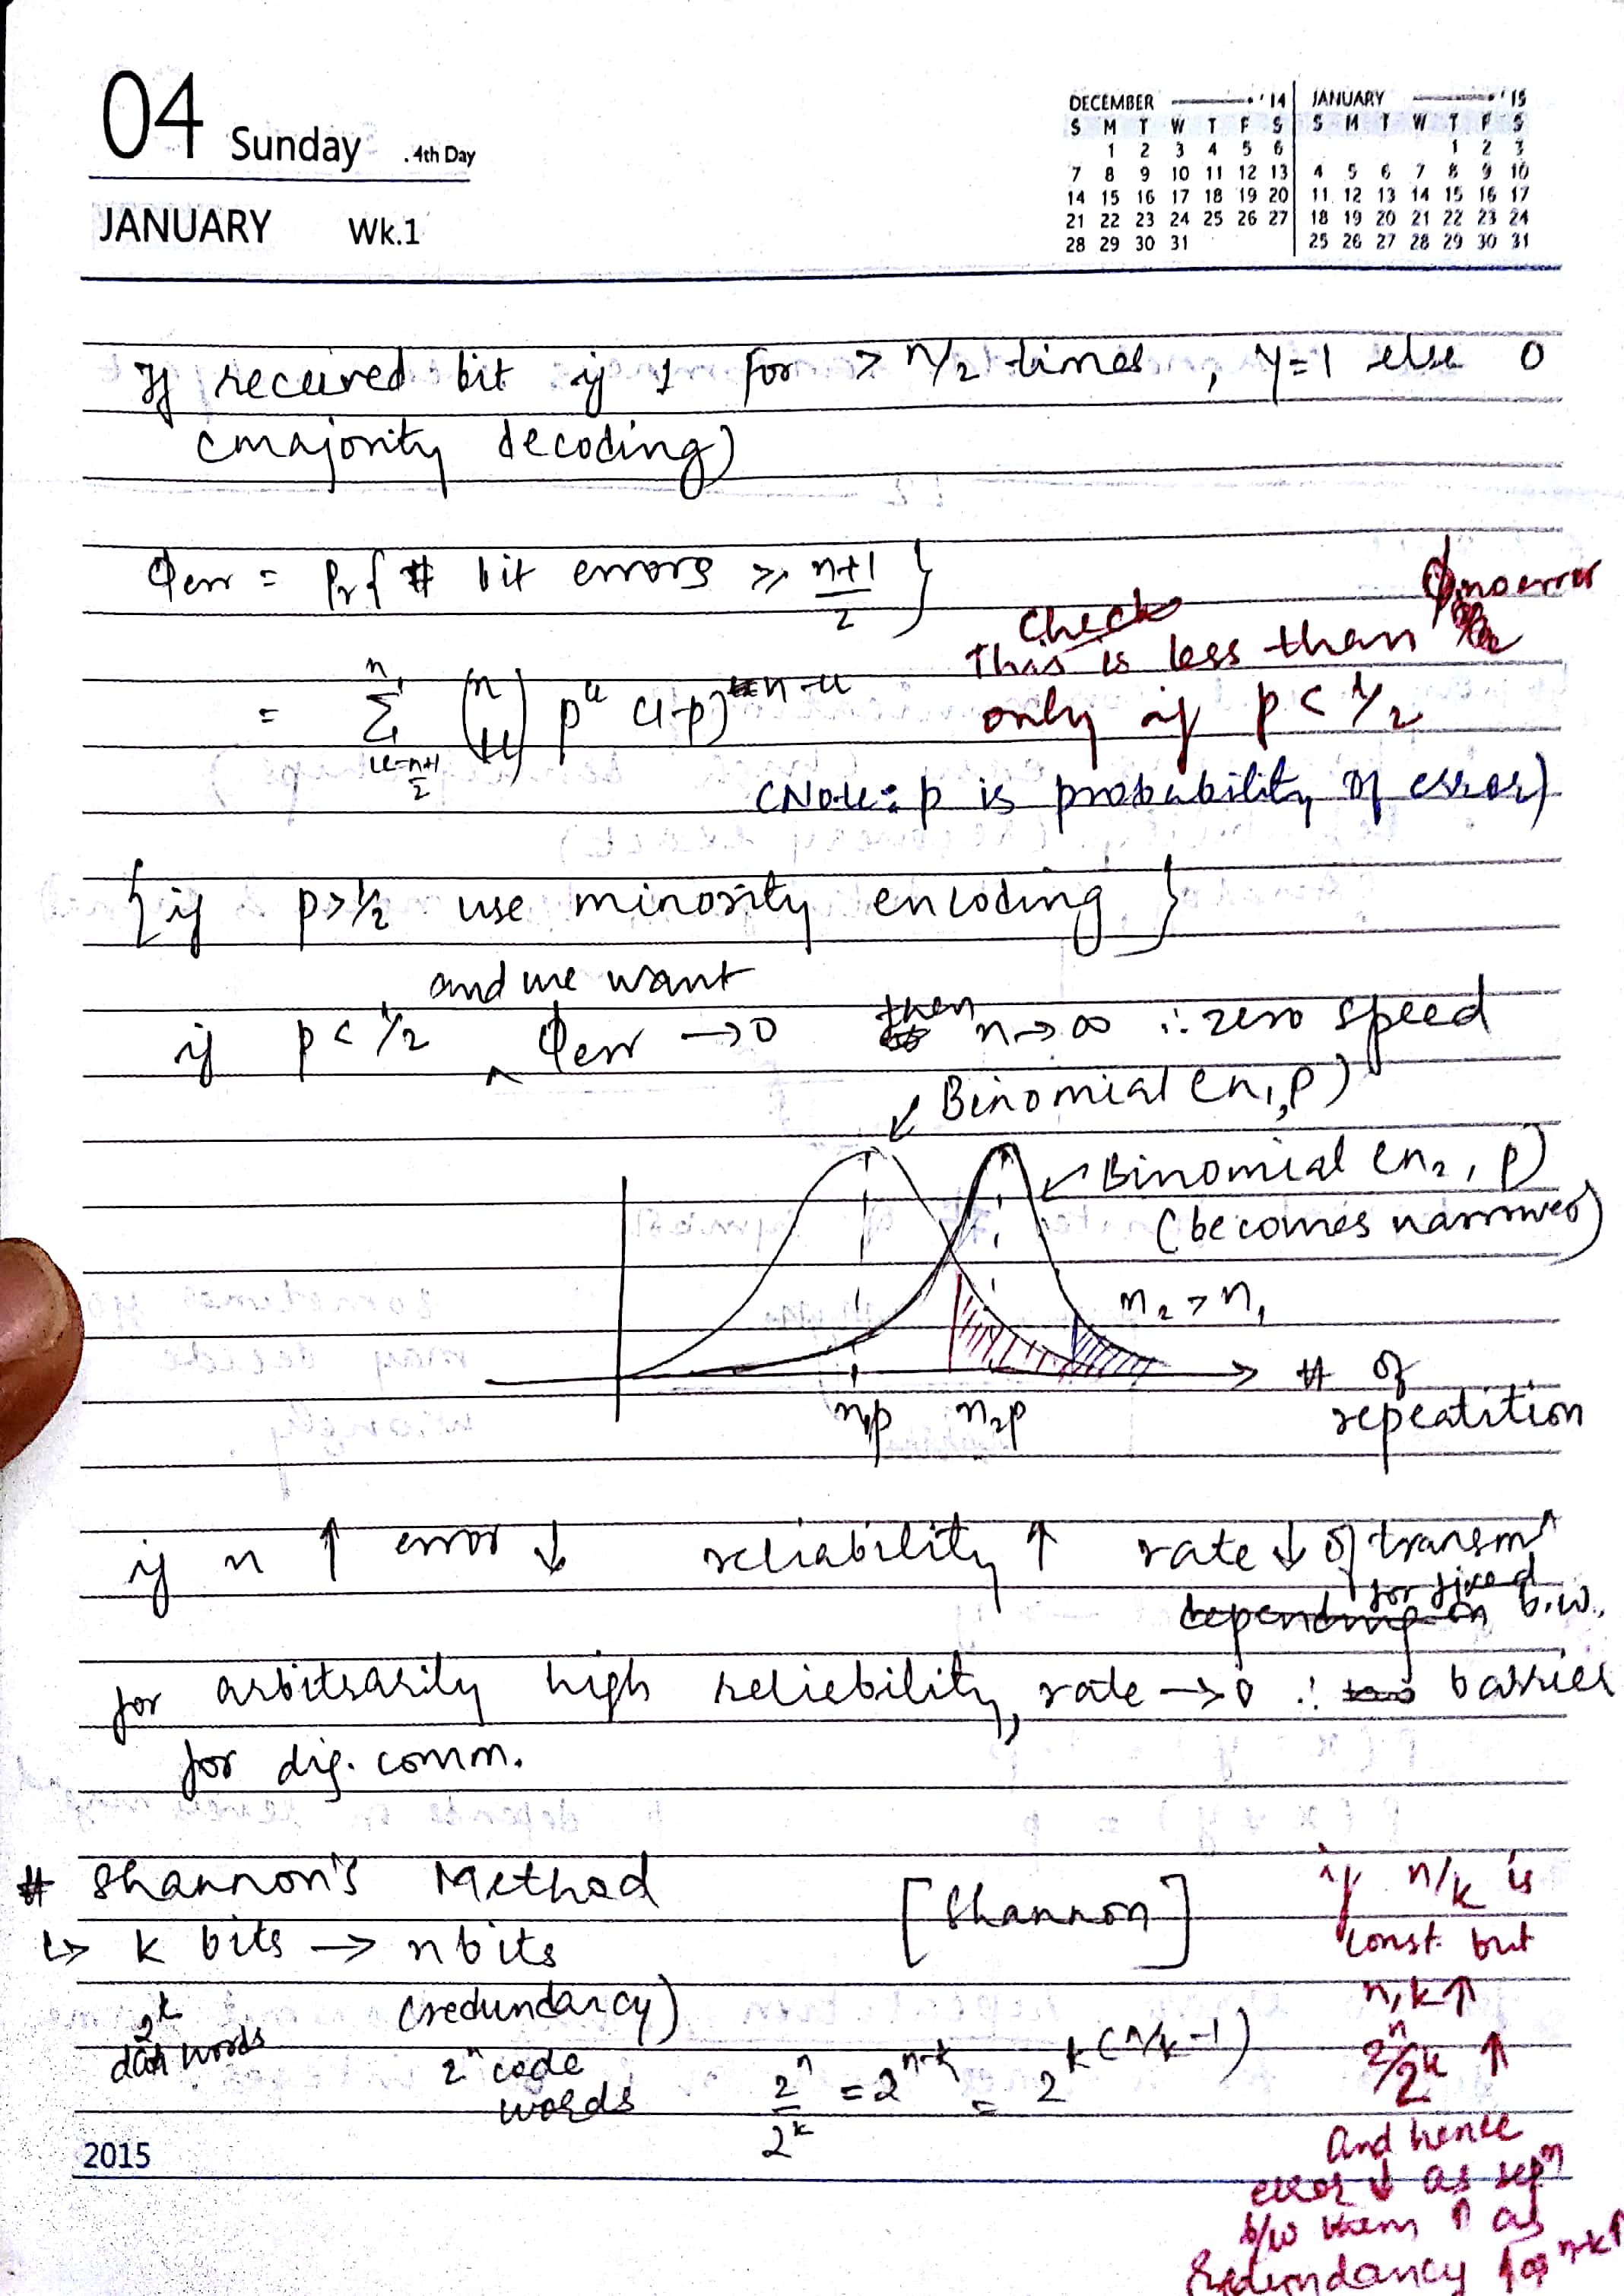 04 Sunday .4th Day
JANUARY Wk.1
DECEMBER '14
S M T W T F S
1 2 3 4 5 6
7 8 9 10 11 12 13
14 15 16 17 18 19 20
21 22 23 24 25 26 27
28 29 30 31
JANUARY '15
S M T W T F S
1 2 3
4 5 6 7 8 9 10
11 12 13 14 15 16 17
18 19 20 21 22 23 24
25 26 27 28 29 30 31
If received bit is 1 for > n/2 times, y=1 else 0
(majority decoding)
Φerr = Pr{ # bit errors ≥ (n+1)/2 }
= Σ_{u=(n+1)/2}^{n} (n u) p^u (1-p)^{n-u}
Check
This is less than Φno error
only if p < 1/2
(Note: p is probability of error)
{if p>1/2 use minority encoding}
if p < 1/2 and we want Φerr → 0 then n → ∞ ∴ zero speed
Binomial (n1, p)
Binomial (n2, p)
(becomes narrower)
n2 > n1
n1p n2p
# of
repeatition
if n ↑ error ↓ reliability ↑ rate ↓ of transmⁿ
for fixed
depending on b.w.
for arbitrarily high reliebility, rate → 0 ∴ barrier
for dig. comm.
# Shannon's Method [Shannon]
↳ k bits → n bits
(redundancy)
2^k
data words
2^n code
words
2^n/2^k = 2^{n-k} = 2^{k(n/k-1)}
if n/k is
const. but
n, k ↑
2^n/2^k ↑
and hence
error ↓ as sepⁿ
b/w them ↑ as
Redundancy ↑ as n-k ↑
2015